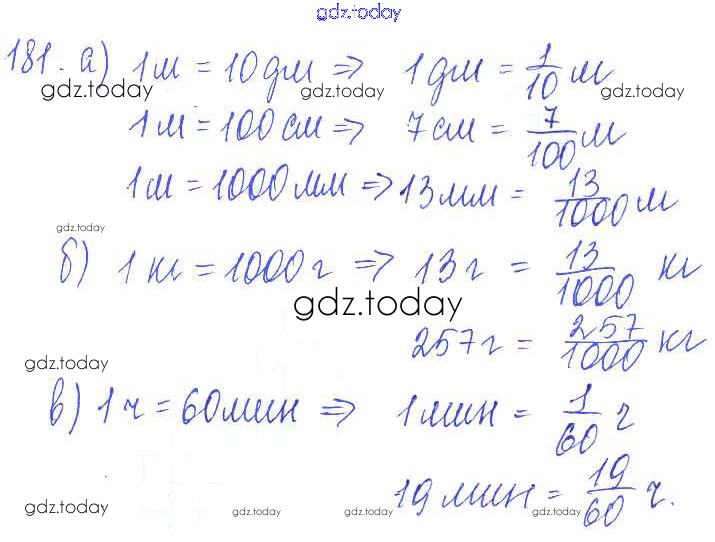 gdz.today
181. а) 1м = 10дм ⇒ 1дм = 1/10 м
gdz.today gdz.today gdz.today
1м = 100см ⇒ 7см = 7/100 м
1м = 1000мм ⇒ 13мм = 13/1000 м
gdz.today
б) 1 кг = 1000г ⇒ 13г = 13/1000 кг
gdz.today
257г = 257/1000 кг
gdz.today
в) 1ч = 60мин ⇒ 1мин = 1/60 ч
19мин = 19/60 ч.
gdz.today gdz.today gdz.today gdz.today